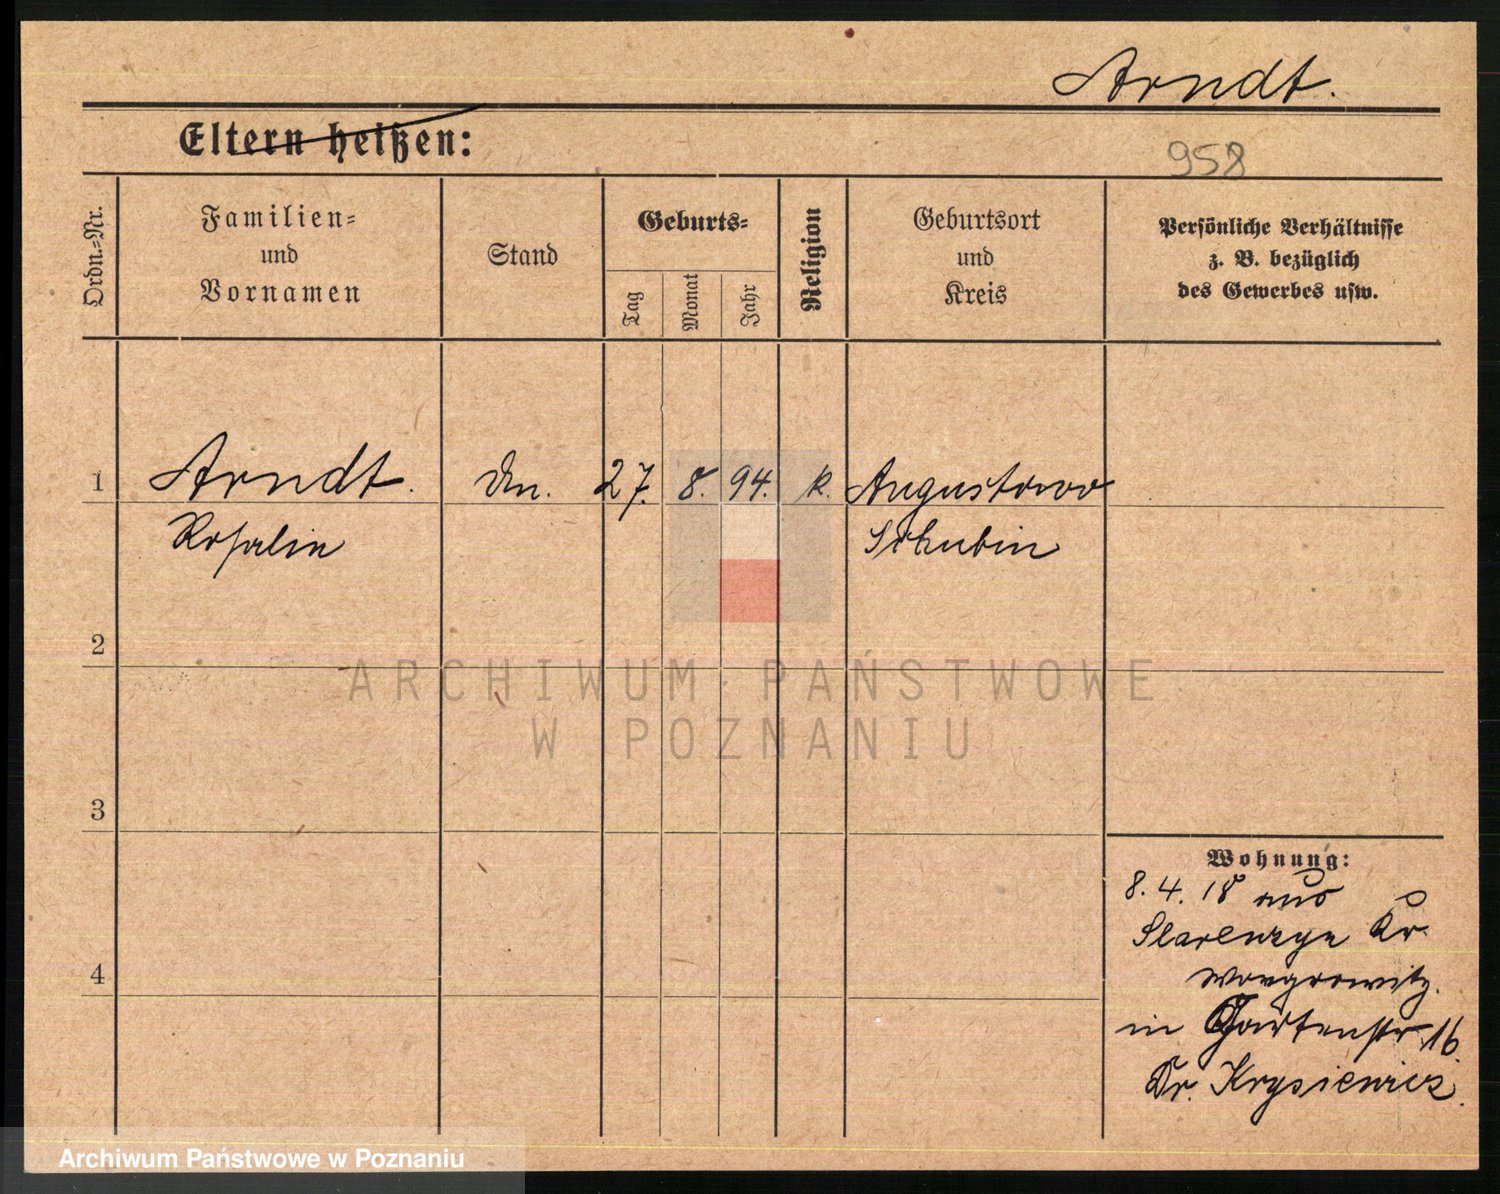 Arndt.
Eltern heißen:
958
Ordn.=Nr.
Familien=
und
Vornamen
Stand
Geburts=
Tag
Monat
Jahr
Religion
Geburtsort
und
Kreis
Persönliche Verhältnisse
z. B. bezüglich
des Gewerbes usw.
1 Arndt. 27. 8. 94. k. Augustowo
Rosalie Schubin
2
ARCHIWUM PAŃSTWOWE
W POZNANIU
3
Wohnung:
8. 4. 18 aus
Kr.
4
Wongrowitz.
in Gartenstr. 16.
Krysiewicz.
Archiwum Państwowe w Poznaniu